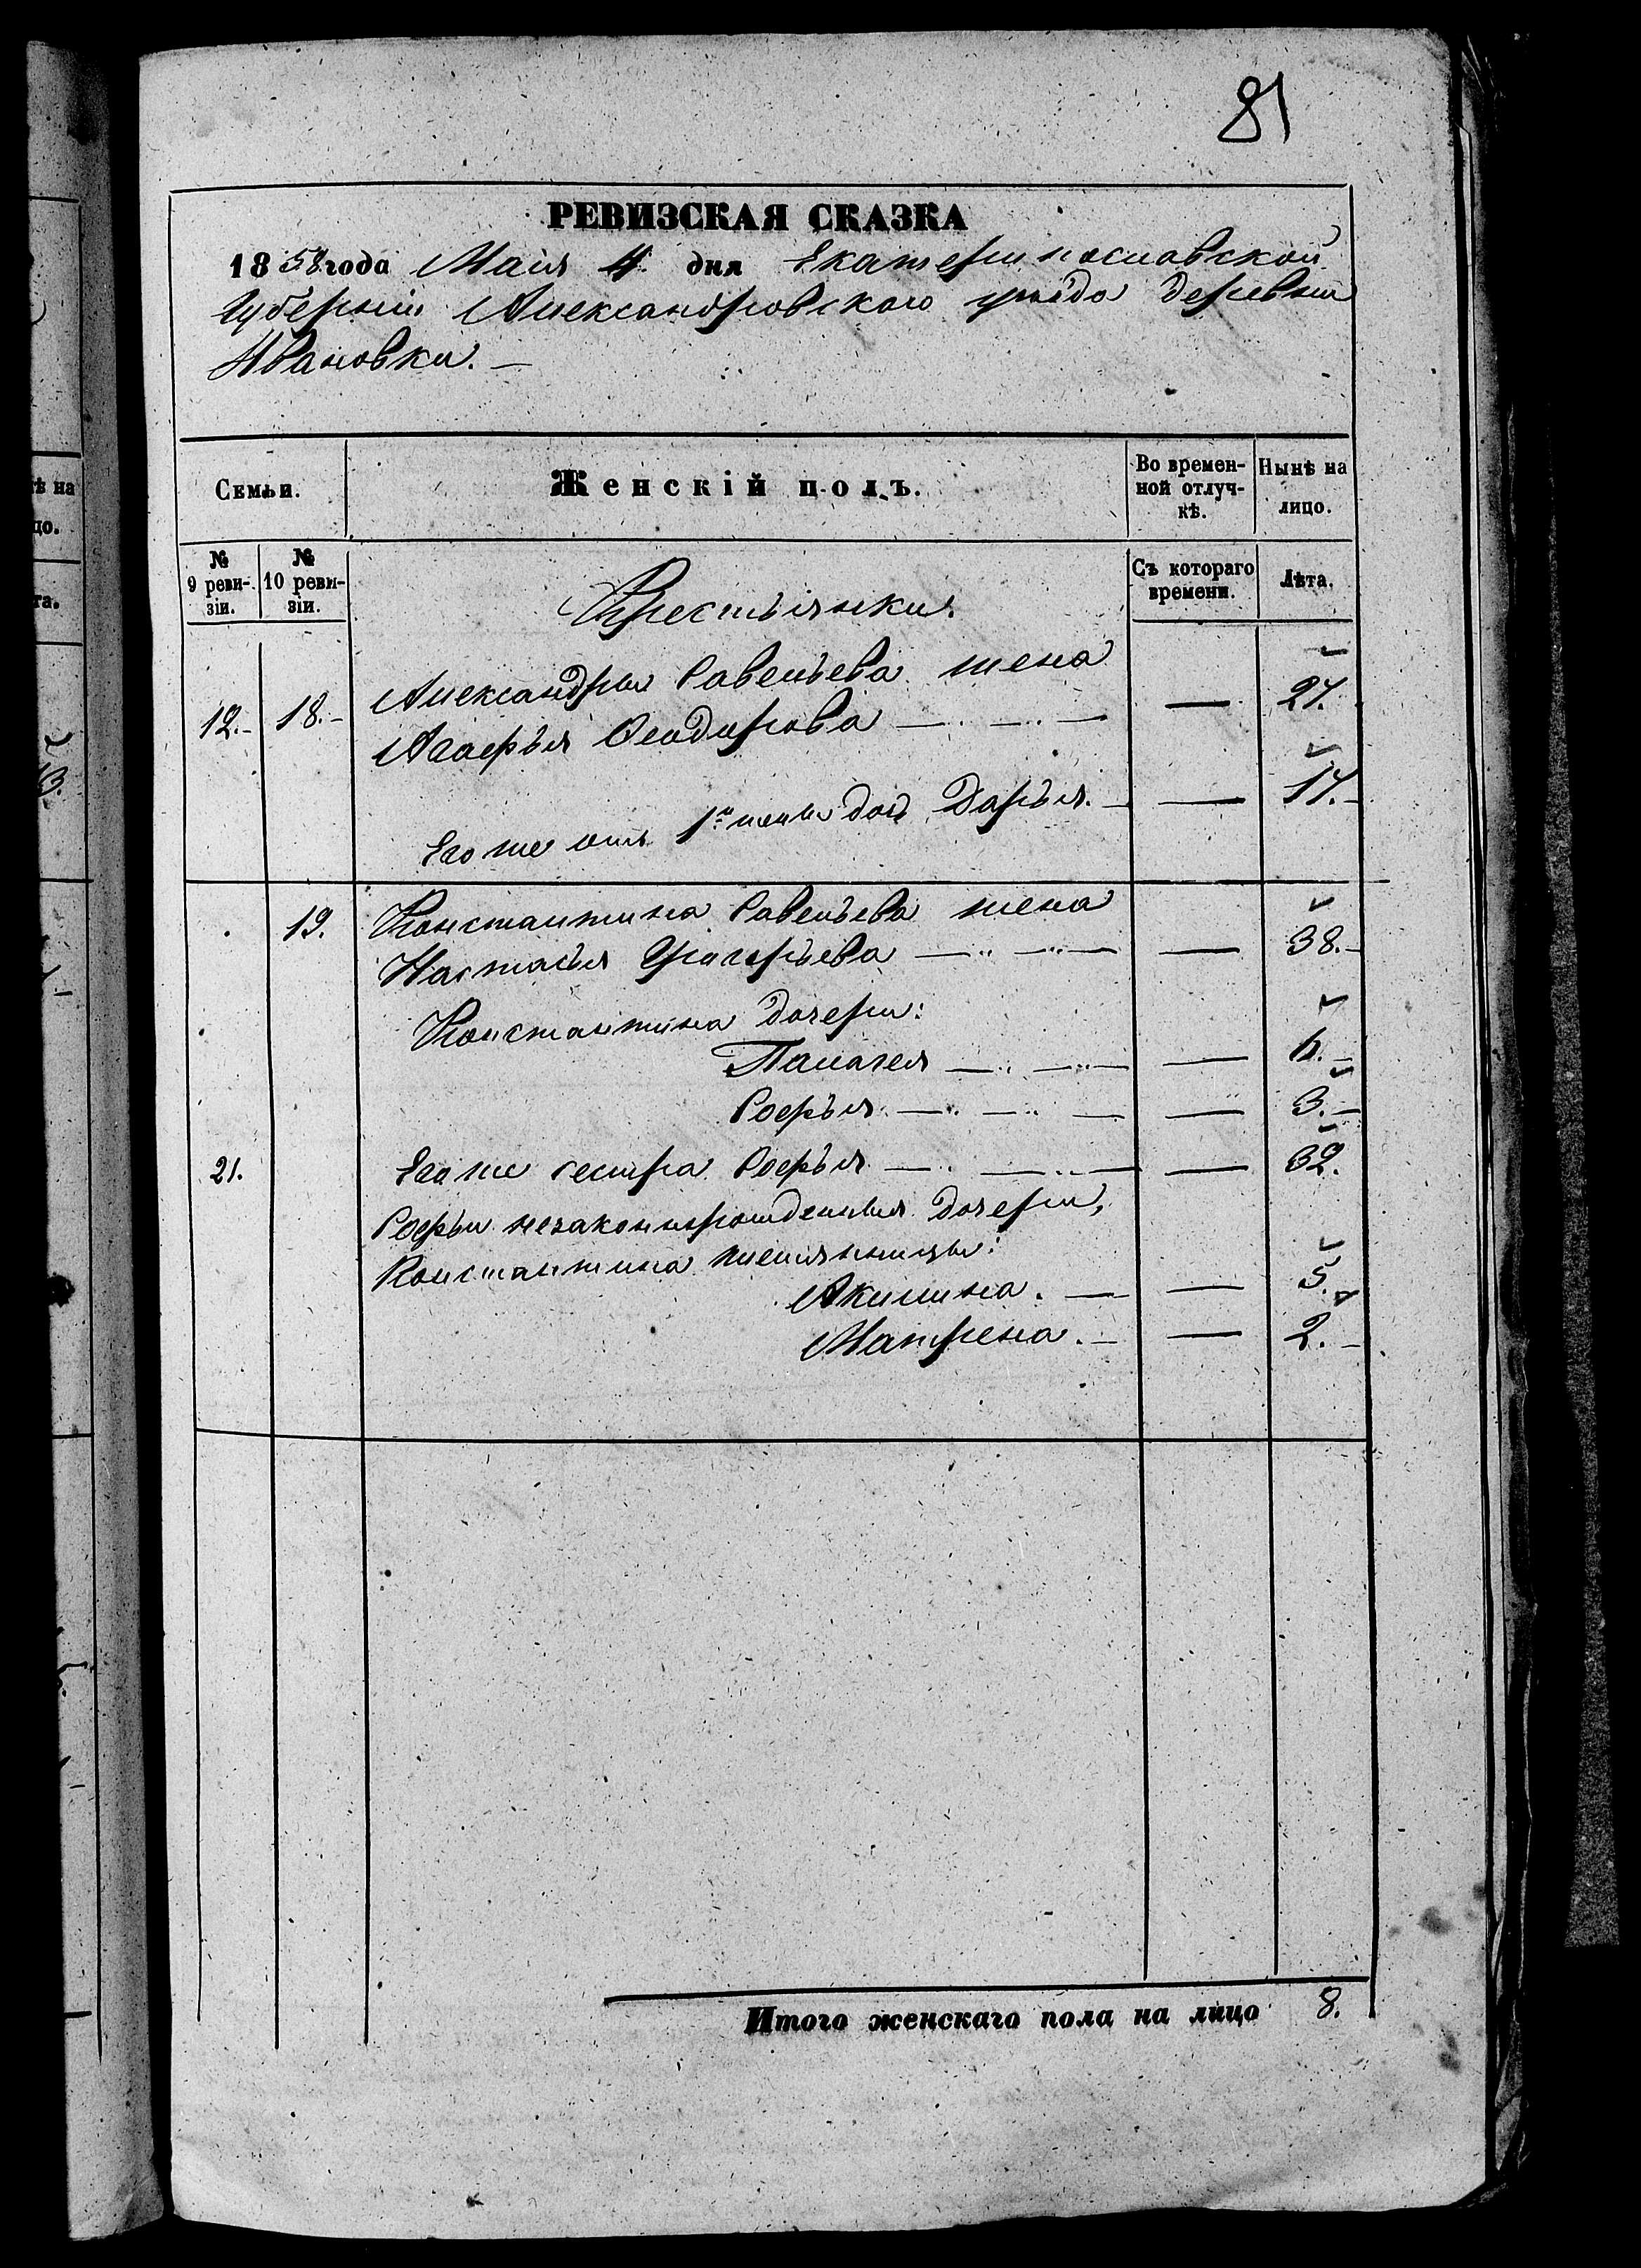 81
РЕВИЗСКАЯ СКАЗКА
1858 года Маія 4. дня Екатеринославской
Губерніи Александровскаго уѣзда деревни
Ивановки. —
Семьи.
Женскій полъ.
Во времен-
ной отлуч-
кѣ.
Нынѣ на
лицо.
№
9 реви-
зіи.
№
10 реви-
зіи.
Съ котораго
времени.
Лѣта.
Крестьянки.
Александры Савельева жена
12. 18. Агафья Феодорова — — 27.
Его же отъ 1й жены доч Дарья. — — 17.
Константина Савельева жена
19. Настасья Григорьева — — 38.
Константина дочери:
Палагея — — 6.
Софья — — 3.
21. Его же сестра Софья — — 32.
Софьи незаконнорожденныя дочери,
Константина племянницы:
Акилина. — — 5.
Матрена. — — 2.
Итого женскаго пола на лицо 8.
ѣ на
цо.
та.